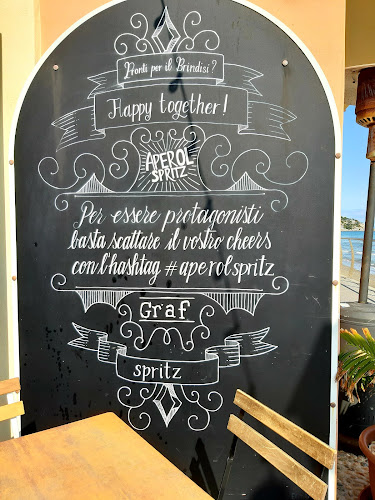 Pronti per il Brindisi?
Happy together!
APEROL
SPRITZ
Per essere protagonisti
basta scattare il vostro cheers
con l'hashtag #aperolspritz
Graf
spritz